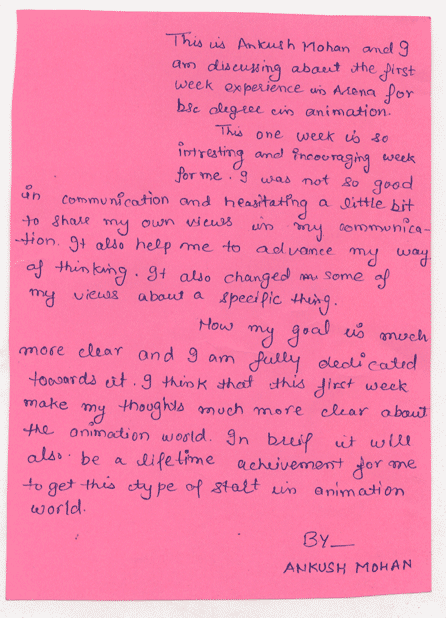 This is Ankush Mohan and I
am discussing about the first
week experience in Arena for
bsc degree in animation.
This one week is so
intresting and incouraging week
for me. I was not so good
in communication and heasitating a little bit
to share my own views in my communica-
-tion. It also help me to advance my way
of thinking. It also changed some of
my views about a specific thing.
Now my goal is much
more clear and I am fully dedicated
towards it. I think that this first week
make my thoughts much more clear about
the animation world. In breif it will
also be a lifetime acheivement for me
to get this type of start in animation
world.
BY_
ANKUSH MOHAN